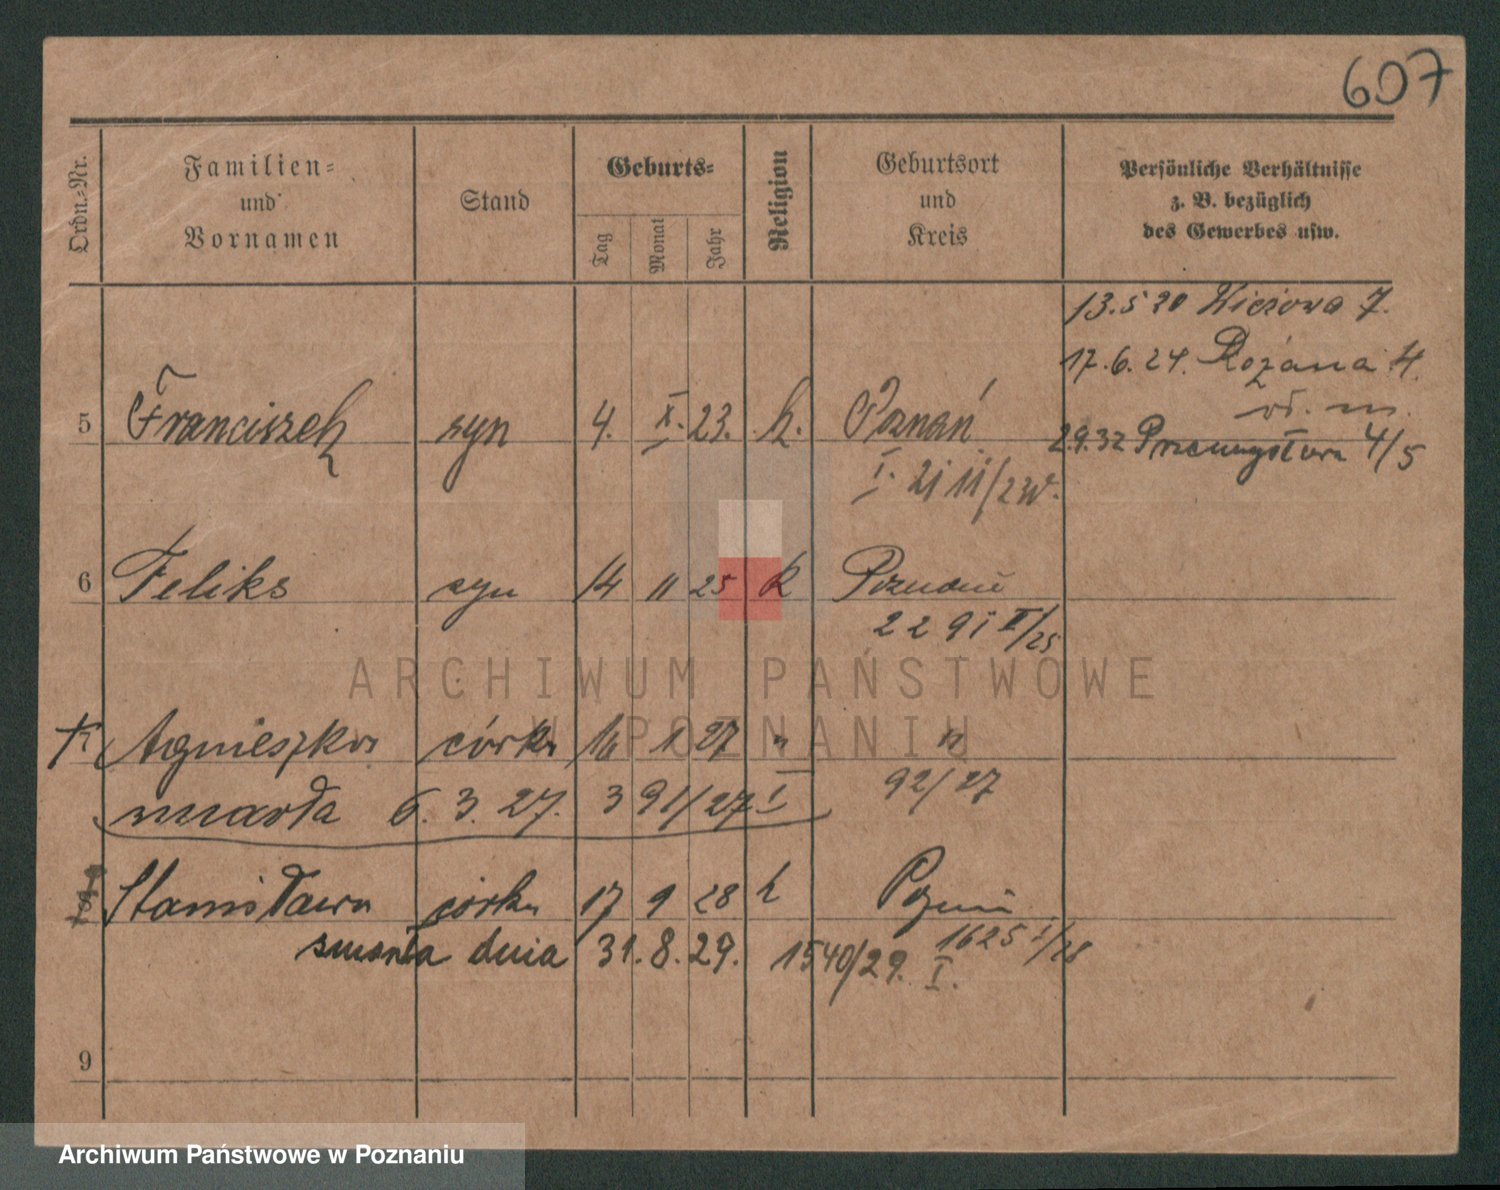 607
Ordn.-Nr.
Familien-
und
Vornamen
Stand
Geburts-
Tag
Monat
Jahr
Religion
Geburtsort
und
Kreis
Persönliche Verhältnisse
z. B. bezüglich
des Gewerbes usw.
13.5 20 7.
17.6.24. Różana 4.
5 Franciszek syn 4. X. 23. k. Poznań
29.32 Przemysłowa 4/5
I. 2111/23
6 Feliks syn 14 11 25 k Poznań
2291 II/25
ARCHIWUM PAŃSTWOWE
W POZNANIU
7 Agnieszka córka 16 1 27 " "
92/27
zmarła 6. 3. 27. 391/27 I
Stanisława córka 17 9 28 k Poznań
1625 I/28
zmarła dnia 31. 8. 29. 1540/29. I.
9
Archiwum Państwowe w Poznaniu